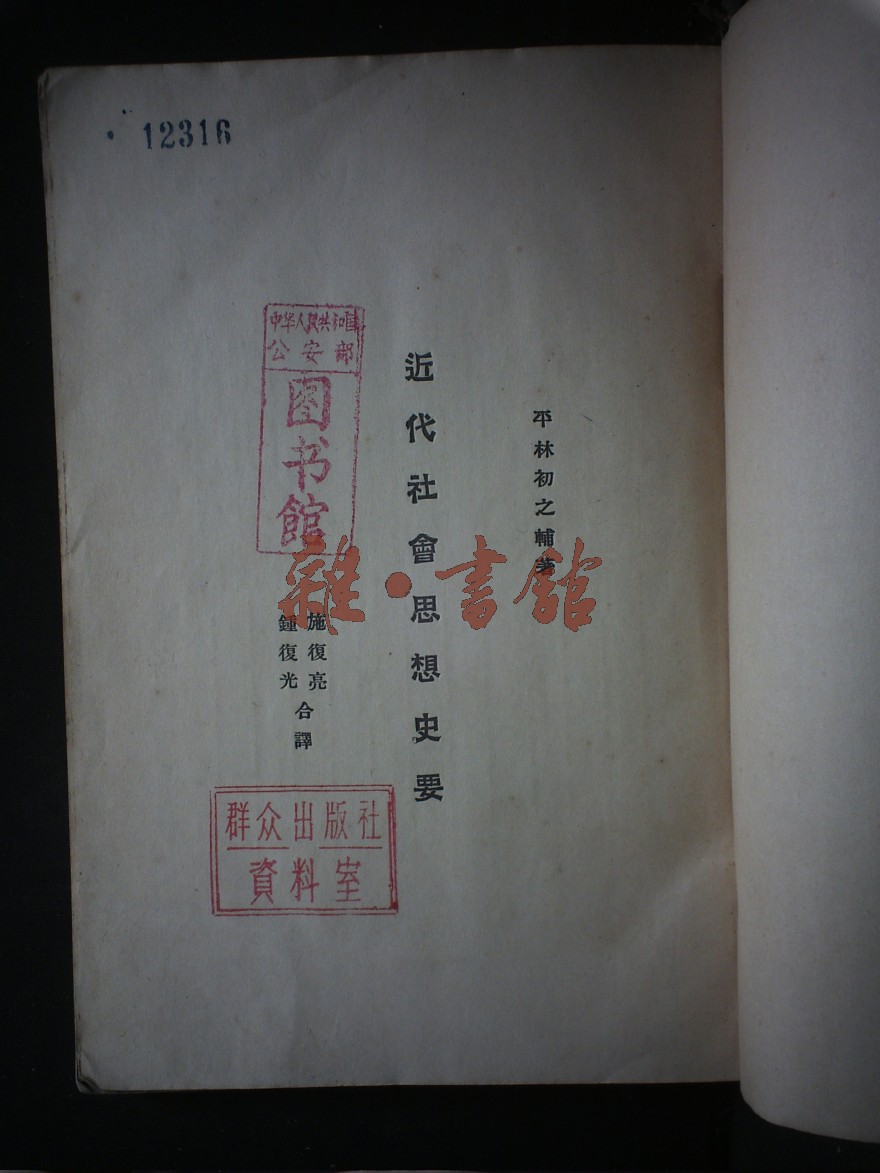 12316
平林初之輔著
近代社會思想史要
施復亮
鍾復光
合譯
中华人民共和国
公安部
图书館
雜·書館
群众出版社
資料室